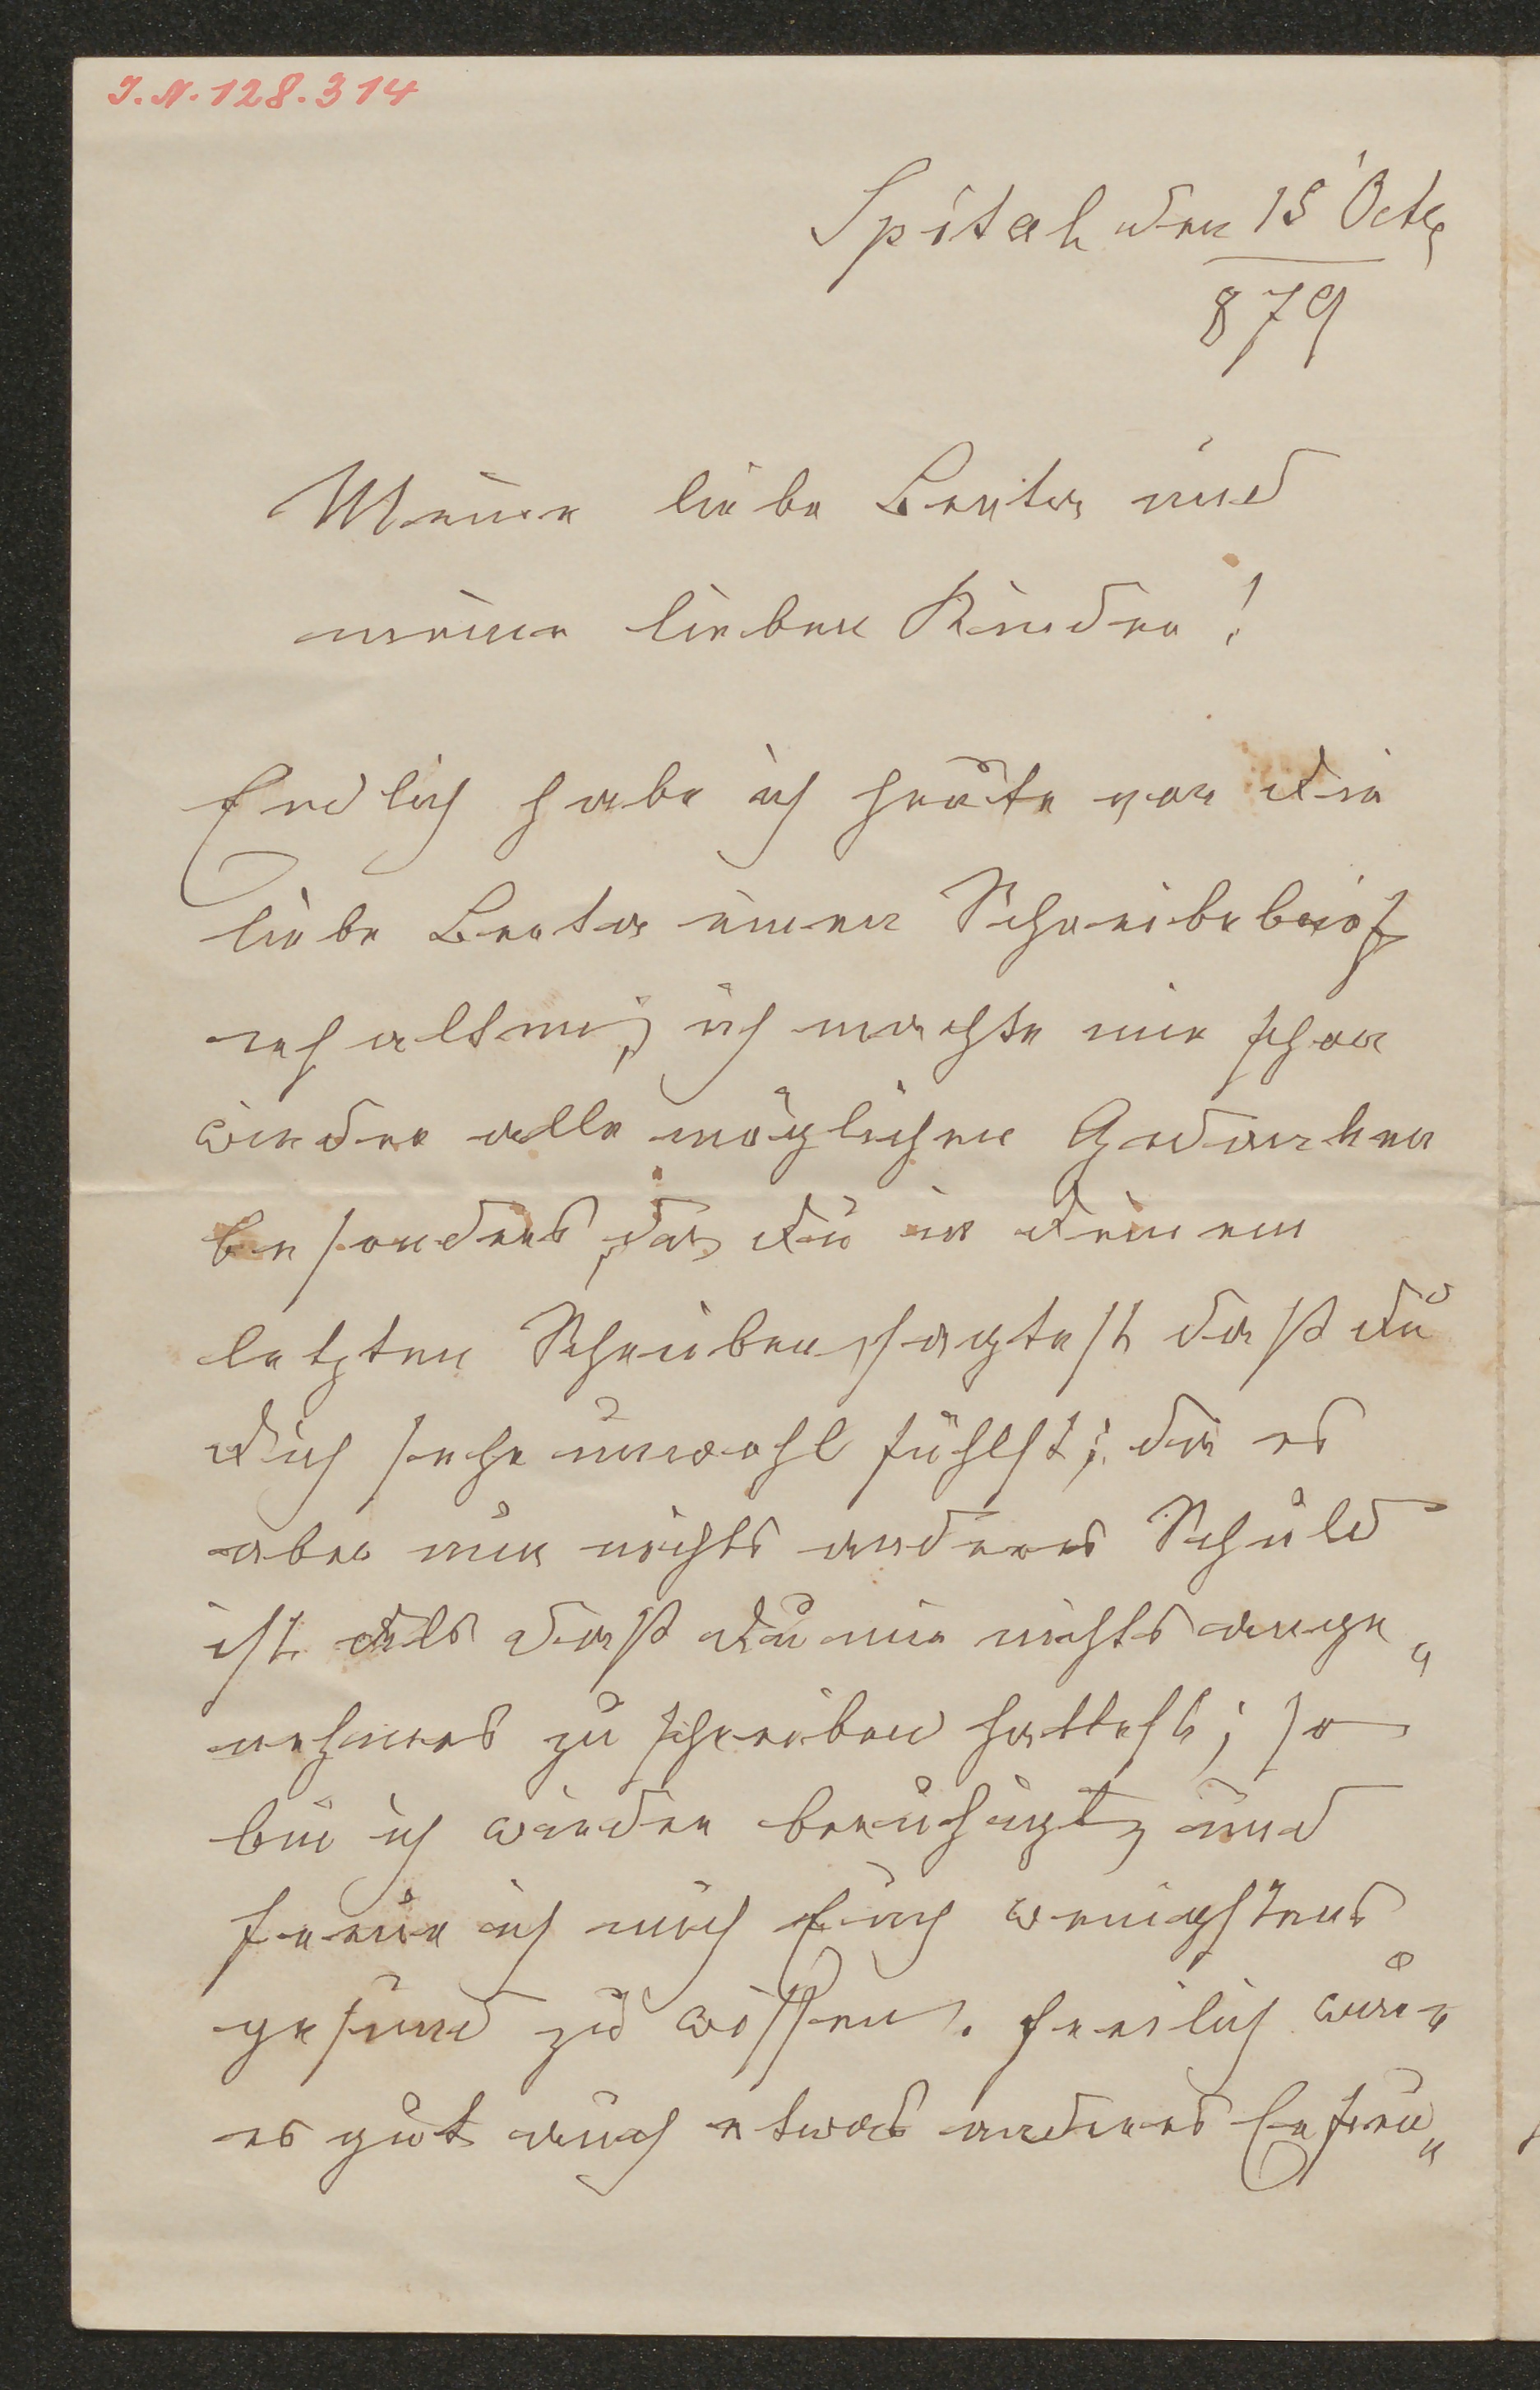 I. N. 128.314
Spital den 15 Octb
879
Meine liebe Berta und
meine lieben Kinder!
Endlich habe ich heute von Dir
liebe Berta einen Schreibebrief
erhalten, ich machte mir schon
wieder alle möglichen Gedanken
besonders, da Du in Deinem
letzten Schreiben sagtest daß Du
Dich sehr unwohl fühlst; da es
aber nun nichts anderes Schuld
ist als daß Du mir nichts ange„
nehmes zu schreiben hattest; so
bin ich wieder beruhigt, und
freue ich mich Euch wenigstens
gesund zu wissen. Freilich wäre
es gut auch etwas anderes Erfreu„